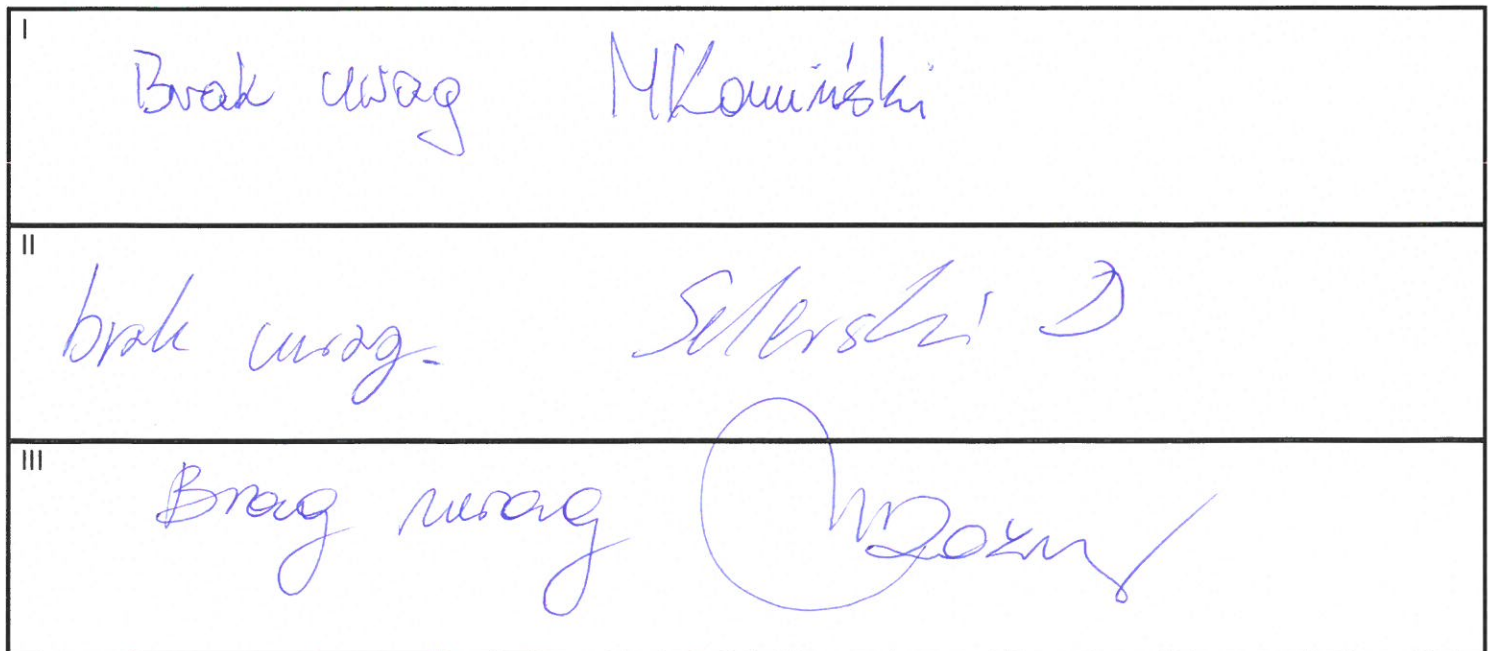 I
Brak uwag MKamiński
II
brak uwag. Selerski D
III
Brag uwag